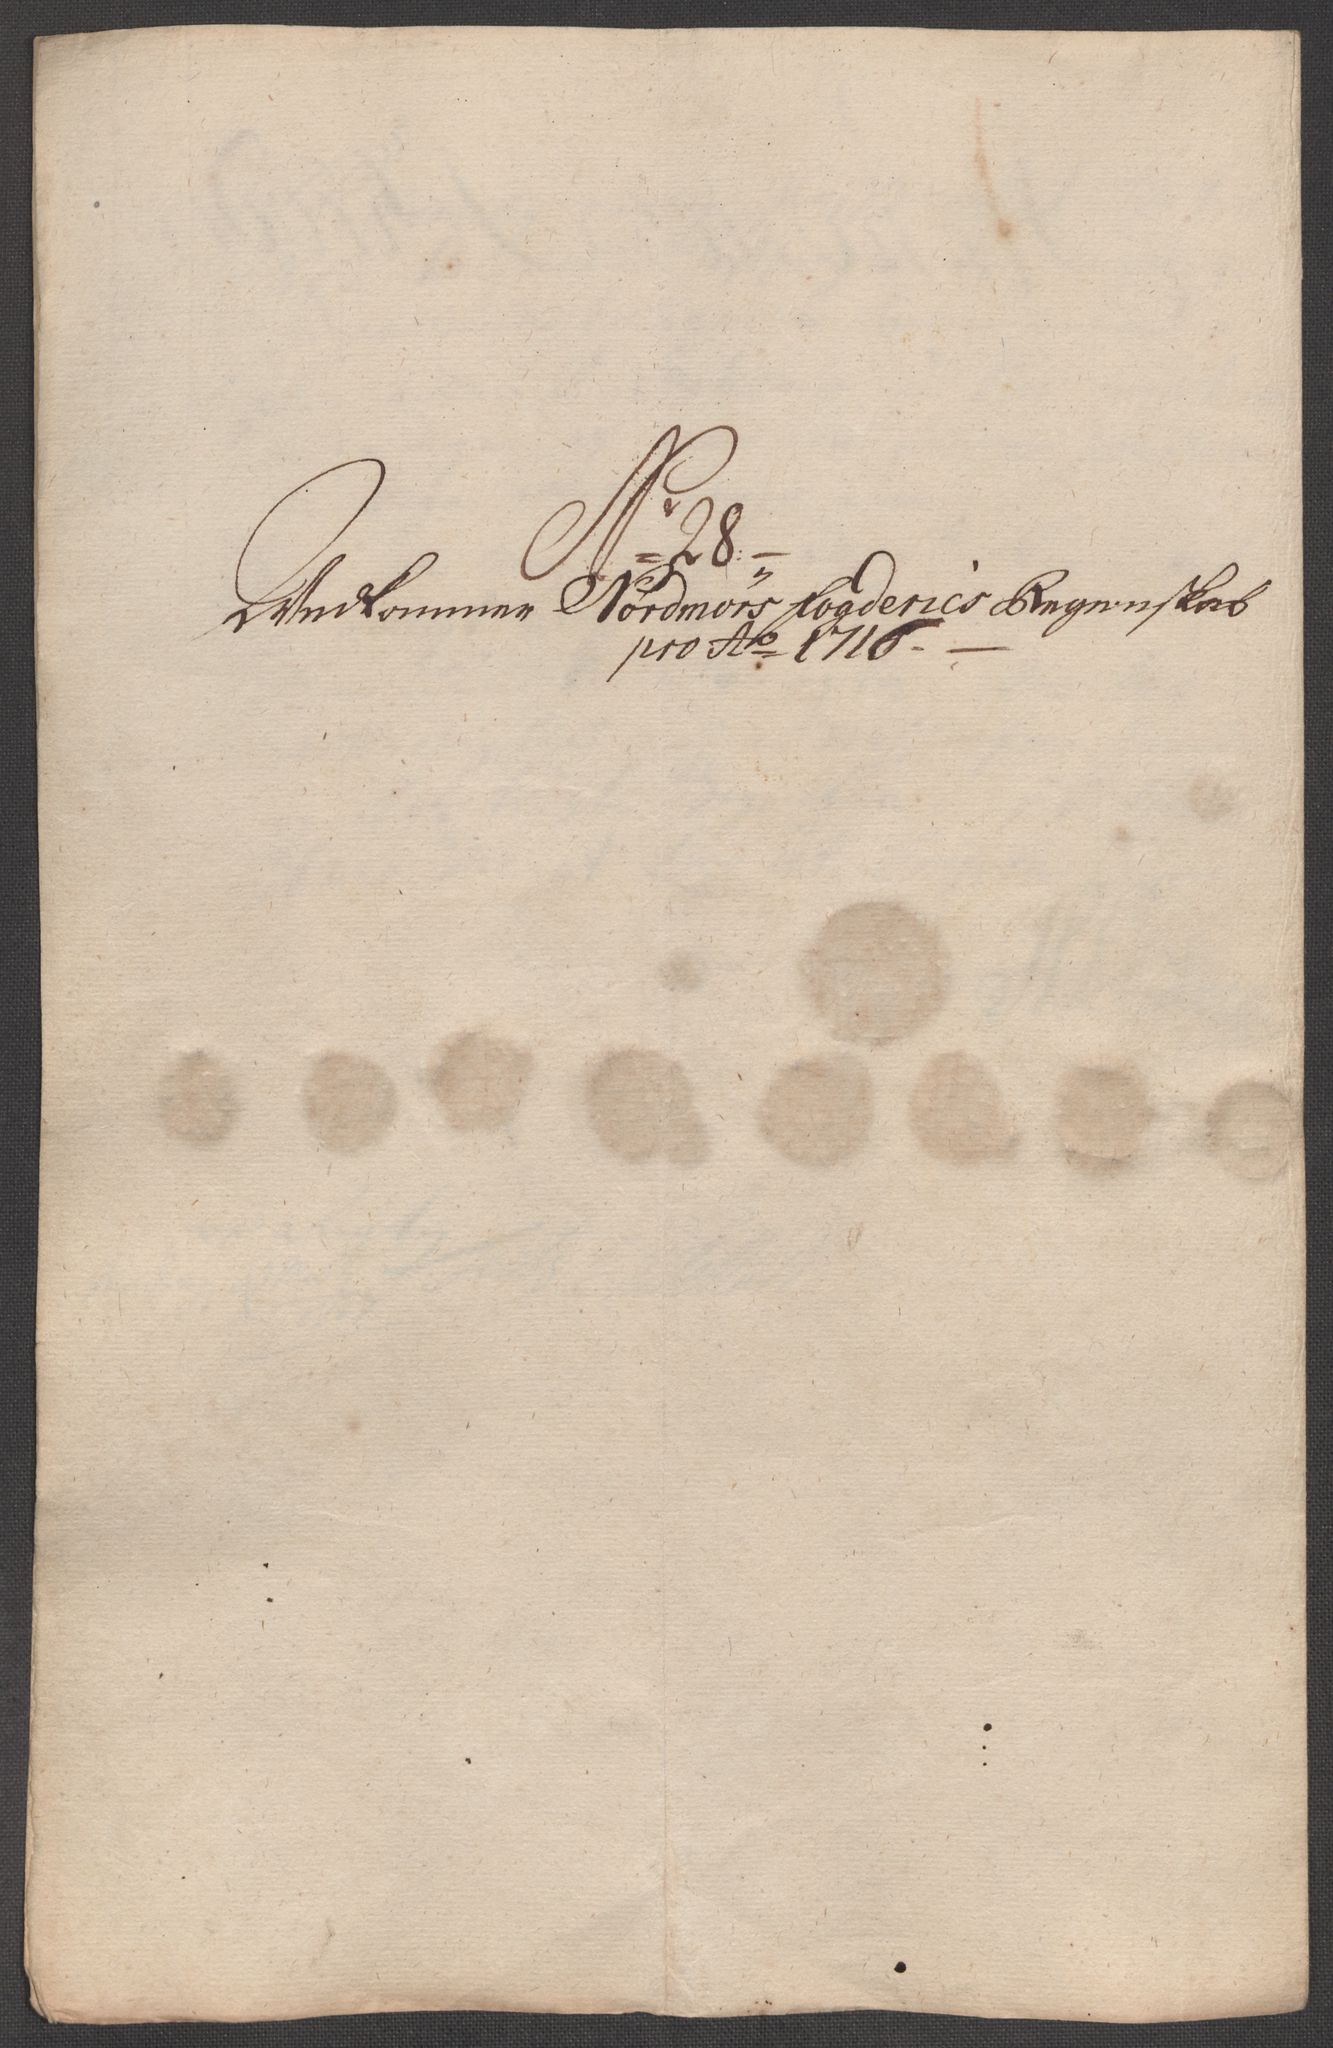 N:28.
Vedkommer Nordmörs fogderies Regenskab
pro Ao 1716.